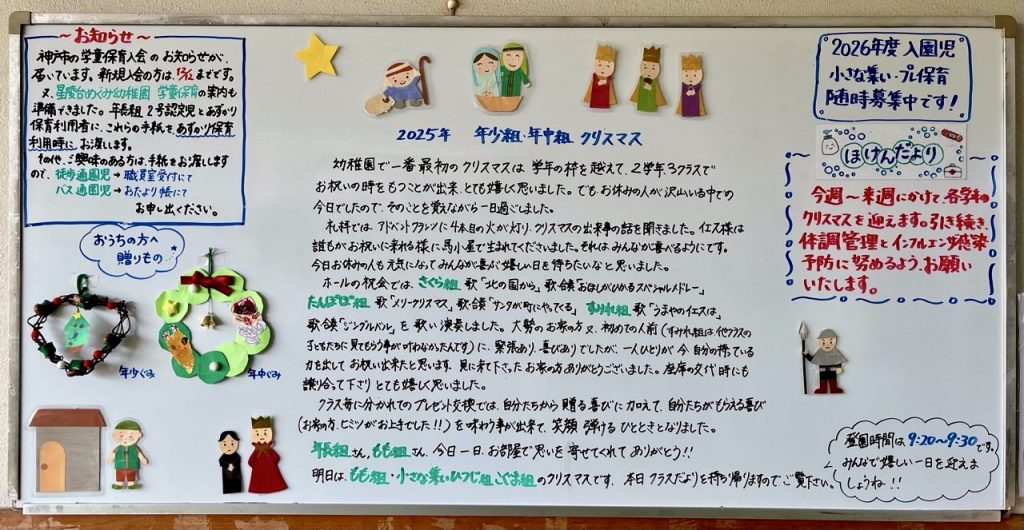 ～ お知らせ ～
神戸市の学童保育入会のお知らせが、
届いています。新規入会の方は、12/12までです。
又、星陵台めぐみ幼稚園 学童保育の案内も
準備できました。年長組 2号認定児とあずかり
保育利用者に、これらの手紙を、あずかり保育
利用時に、お渡します。
その他、ご興味のある方は、手紙をお渡ししますので、
徒歩通園児→職員室受付にて
バス通園児→おたより帳にて
お申し出ください。
おうちの方へ
贈りもの
年少ぐみ
年中ぐみ
2025年 年少組・年中組 クリスマス
幼稚園で一番最初のクリスマスは 学年の枠を越えて、2学年3クラスで
お祝いの時をもつことが出来、とても嬉しく思いました。でも、お休みの人が沢山いる中での
今日でしたので、そのことを覚えながら一日過ごしました。
礼拝では、アドベントクランツに4本目の火が灯り、クリスマスの出来事の話を聞きました。イエス様は
誰もがお祝いに来れる様に馬小屋で生まれてくださいました。それはみんなが喜べるようにです。
今日お休みの人も元気になってみんなが喜ぶ嬉しい日を待ちたいなと思いました。
ホールの祝会では、さくら組 歌「北の国から」、歌・合奏「おほしがひかるスペシャルメドレー」
たんぽぽ組 歌「メリークリスマス」、歌・合奏「サンタが町にやってくる」 すみれ組 歌「うまやのイエスは」、
歌・合奏「ジングルベル」を歌い演奏しました。大勢のお家の方、又、初めての人前(すみれ組は他クラスの
子どもたちに見てもらう事が叶わなかったんです)に、緊張あり、喜びありでしたが、一人ひとりが今、自分の持っている
力を出して お祝い出来たと思います。見に来て下さったお家の方ありがとうございました。座席の交代時にも
譲り合って下さり とても嬉しく思いました。
クラス毎に分かれてのプレゼント交換では、自分たちから贈る喜びに加えて、自分たちがもらえる喜び
(お家の方、ヒミツがお上手でした!!)を味わう事が出来て、笑顔弾けるひとときとなりました。
年長組さん、もも組さん、今日一日、お部屋で思いを寄せてくれてありがとう!!
明日は、もも組・小さな集いひつじ組こぐま組のクリスマスです。本日クラスだよりを持ち帰りますのでご覧下さい。
2026年度 入園児
小さな集い・プレ保育
随時募集中です!
ほけんだより
今週～来週にかけて、各学年の
クリスマスを迎えます。引き続き、
体調管理とインフルエンザ感染
予防に努めるよう、お願い
いたします。
登園時間は、9:20～9:30です。
みんなで嬉しい一日を迎えま
しょうね!!